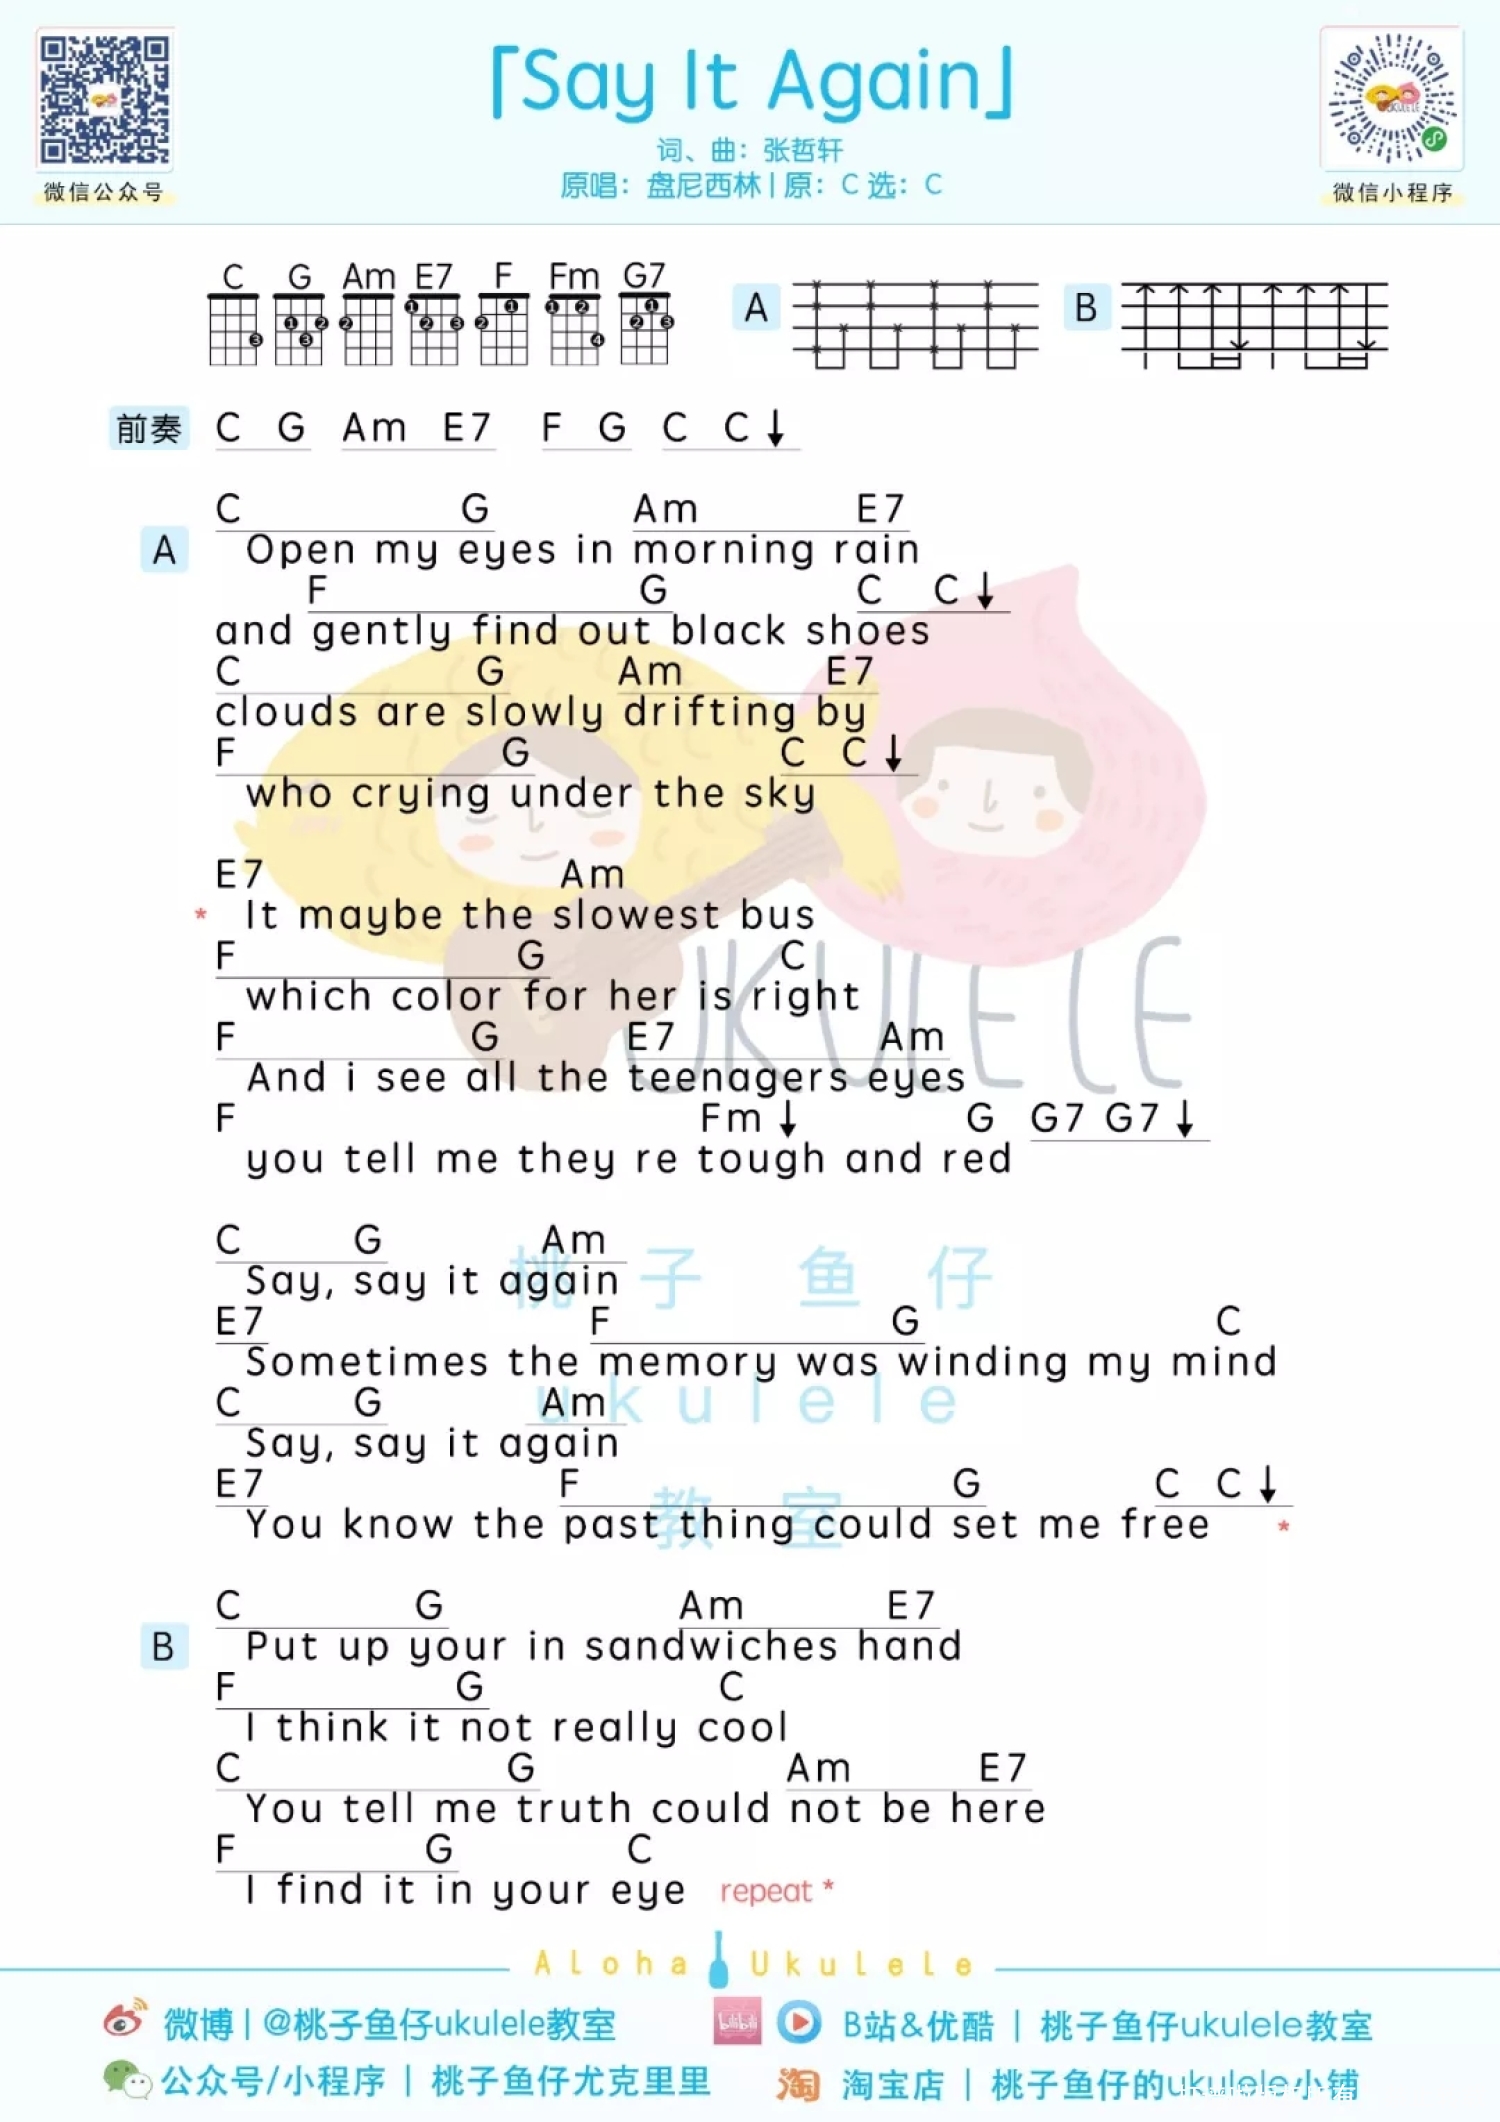 「Say It Again」
词、曲：张哲轩
原唱：盘尼西林 | 原：C 选：C
微信公众号
微信小程序
C G Am E7 F Fm G7
A B
前奏 C G Am E7 F G C C↓
C G Am E7
A Open my eyes in morning rain
F G C C↓
and gently find out black shoes
C G Am E7
clouds are slowly drifting by
F G C C↓
who crying under the sky
E7 Am
* It maybe the slowest bus
F G C
which color for her is right
F G E7 Am
And i see all the teenagers eyes
F Fm↓ G G7 G7↓
you tell me they re tough and red
C G Am
Say, say it again
E7 F G C
Sometimes the memory was winding my mind
C G Am
Say, say it again
E7 F G C C↓
You know the past thing could set me free *
C G Am E7
B Put up your in sandwiches hand
F G C
I think it not really cool
C G Am E7
You tell me truth could not be here
F G C
I find it in your eye repeat *
UKULELE
桃子鱼仔
ukulele
教室
Aloha Ukulele
微博 | @桃子鱼仔ukulele教室
bilibili B站&优酷 | 桃子鱼仔ukulele教室
公众号/小程序 | 桃子鱼仔尤克里里
淘 淘宝店 | 桃子鱼仔的ukulele小铺